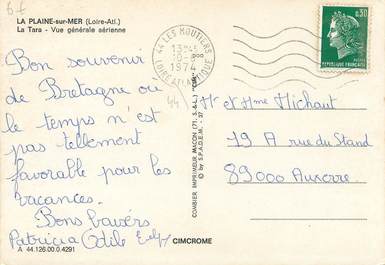 6€
LA PLAINE-sur-MER (Loire-Atl.)
La Tara - Vue générale aérienne
44 LES MOUTIERS
1974
LOIRE ATLANTIQUE
0,30
REPUBLIQUE FRANÇAISE
Bon souvenir
de Bretagne ou
le temps n'est
pas tellement
favorable pour les
vacances.
Bons baisers
Patricia Odile
44
Mr et Mme Michaut
19 A rue du Stand
89000 Auxerre
COMBIER IMPRIMEUR MACON (71, S.-&-L.) "CIM"
© by S.P.A.D.E.M. - 27
CIMCROME
A 44.126.00.0.4291